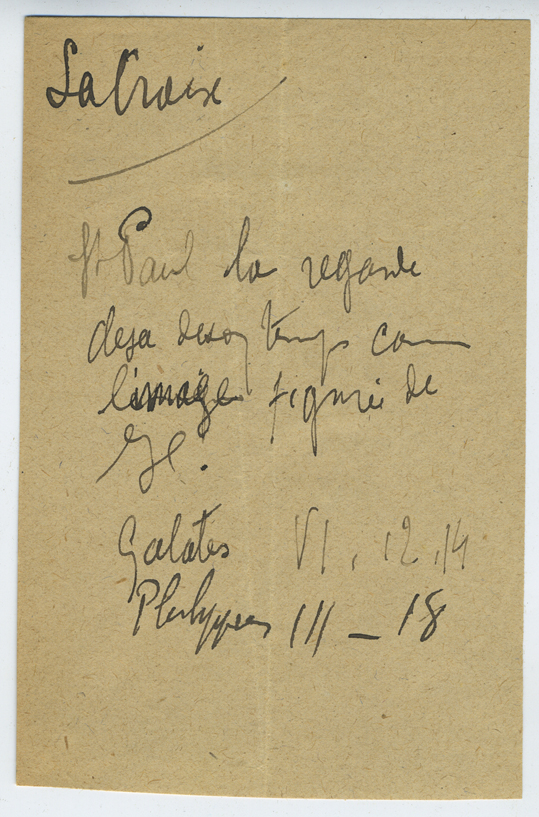 La Croix
St Paul la regarde
deja de son temps com
l'image figurée de
Galates VI, 12, 14
Philippiens III - 18